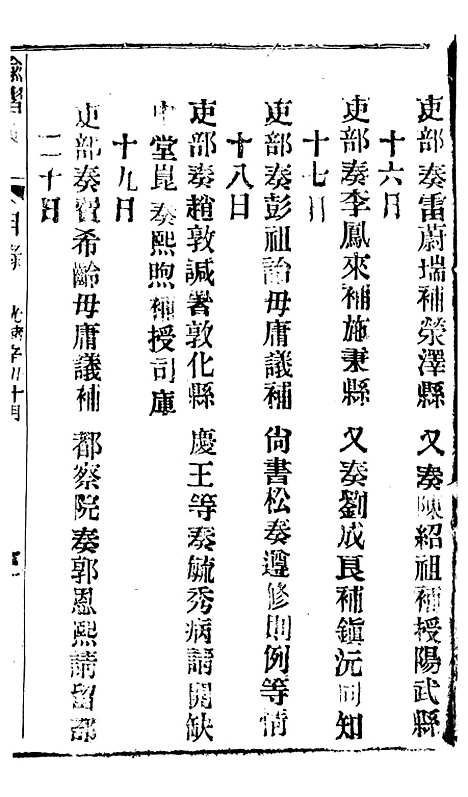 吏部奏雷蔚瑞補滎澤縣 又奏陳紹祖補授陽武縣
十六日
吏部奏李鳳來補施秉縣 又奏劉成良補鎮沅同知
十七日
吏部奏彭祖詒毋庸議補 尙書松奏遵修則例等情
十八日
吏部奏趙敦諴署敦化縣 慶王等奏毓秀病請開缺
中堂崑奏熙煦補授司庫
十九日
吏部奏 希齡毋庸議補 都察院奏郭恩熙請留部
二十日
諭摺 目錄 光緒 年十月